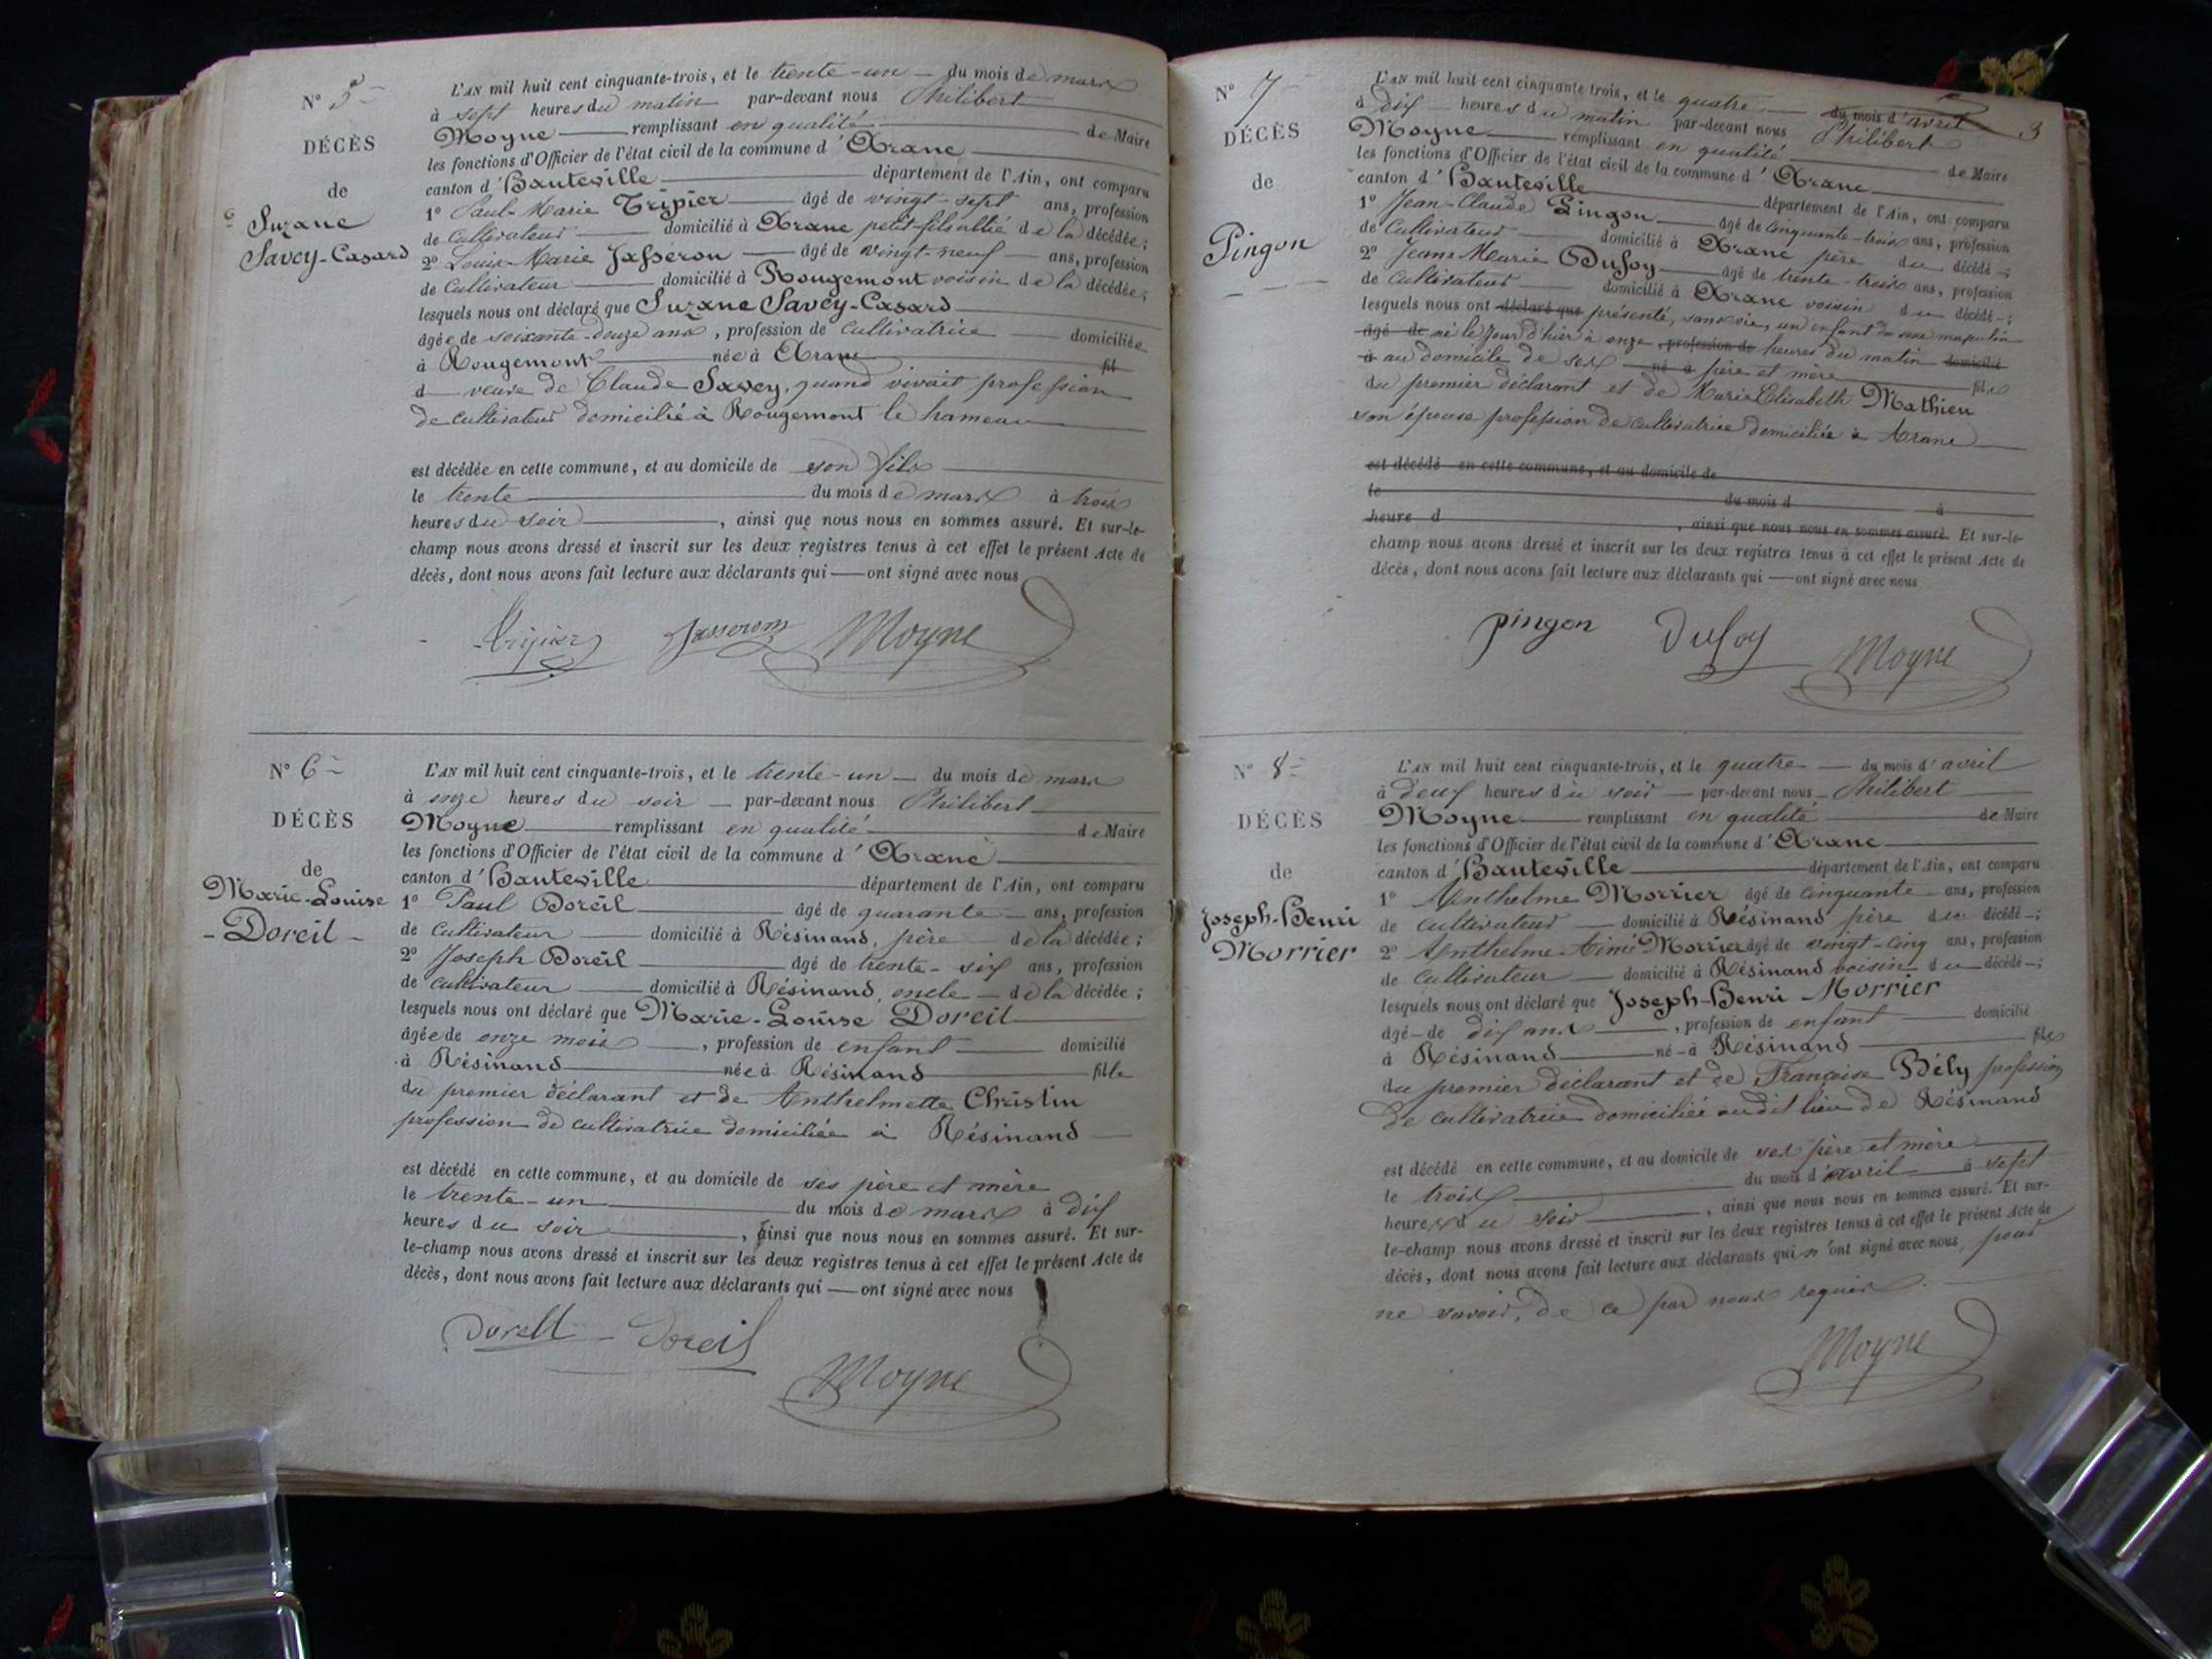 N° 5
DÉCÈS
de
Suzane
Savey-Casard
L'AN mil huit cent cinquante-trois, et le trente-un du mois de mars
à sept heures du matin par-devant nous Philibert
Moyne remplissant en qualité de Maire
les fonctions d'Officier de l'état civil de la commune d'Arane
canton d'Hauteville département de l'Ain, ont comparu
1° Paul-Marie Tripier âgé de vingt-sept ans, profession
de cultivateur domicilié à Arane petit-fils allié de la décédée;
2° Louis-Marie Jasseron âgé de vingt-neuf ans, profession
de cultivateur domicilié à Rougemont voisin de la décédée;
lesquels nous ont déclaré que Suzane Savey-Casard
âgée de soixante-douze ans, profession de cultivatrice domiciliée
à Rougemont née à Arane fil
d veuve de Claude Savey, quand vivait profession
de cultivateur domicilié à Rougemont le hameau
est décédée en cette commune, et au domicile de son fils
le trente du mois de mars à trois
heures du soir, ainsi que nous nous en sommes assuré. Et sur-le-
champ nous avons dressé et inscrit sur les deux registres tenus à cet effet le présent Acte de
décès, dont nous avons fait lecture aux déclarants qui ont signé avec nous
Tripier Jasseron Moyne
N° 6
DÉCÈS
de
Marie-Louise
- Doreil -
L'AN mil huit cent cinquante-trois, et le trente-un du mois de mars
à onze heures du soir par-devant nous Philibert
Moyne remplissant en qualité de Maire
les fonctions d'Officier de l'état civil de la commune d'Arane
canton d'Hauteville département de l'Ain, ont comparu
1° Paul Doreil âgé de quarante ans, profession
de cultivateur domicilié à Résinand, père de la décédée;
2° Joseph Doreil âgé de trente-six ans, profession
de cultivateur domicilié à Résinand, oncle de la décédée;
lesquels nous ont déclaré que Marie-Louise Doreil
âgée de onze mois, profession de enfant domicilié
à Résinand née à Résinand fille
du premier déclarant et de Anthelmette Christin
profession de cultivatrice domiciliée à Résinand
est décédé en cette commune, et au domicile de ses père et mère
le trente-un du mois de mars à dix
heures du soir, ainsi que nous nous en sommes assuré. Et sur-
le-champ nous avons dressé et inscrit sur les deux registres tenus à cet effet le présent Acte de
décès, dont nous avons fait lecture aux déclarants qui ont signé avec nous
Dorell Doreil
Moyne
3
N° 7
DÉCÈS
de
Pingon
L'AN mil huit cent cinquante-trois, et le quatre du mois d'avril
à dix heures du matin par-devant nous Philibert
Moyne remplissant en qualité de Maire
les fonctions d'Officier de l'état civil de la commune d'Arane
canton d'Hauteville département de l'Ain, ont comparu
1° Jean-Claude Pingon âgé de cinquante-trois ans, profession
de cultivateur domicilié à Arane père du décédé;
2° Jean-Marie Dufoy âgé de trente-trois ans, profession
de cultivateur domicilié à Arane voisin du décédé;
lesquels nous ont déclaré que présenté, sans vie, un enfant du sexe masculin
âgé de né le jour d'hier à onze, profession de heures du matin domicilié
à au domicile de ses né à père et mère fils
du premier déclarant et de Marie Elisabeth Mathieu
son épouse profession de cultivatrice domiciliée à Arane
est décédé en cette commune, et au domicile de
le du mois d à
heure d, ainsi que nous nous en sommes assuré. Et sur-le-
champ nous avons dressé et inscrit sur les deux registres tenus à cet effet le présent Acte de
décès, dont nous avons fait lecture aux déclarants qui ont signé avec nous
pingon Dufoy Moyne
N° 8
DÉCÈS
de
Joseph-Henri
Morrier
L'AN mil huit cent cinquante-trois, et le quatre du mois d'avril
à deux heures du soir par-devant nous Philibert
Moyne remplissant en qualité de Maire
les fonctions d'Officier de l'état civil de la commune d'Arane
canton d'Hauteville département de l'Ain, ont comparu
1° Anthelme Morrier âgé de cinquante ans, profession
de cultivateur domicilié à Résinand père du décédé;
2° Anthelme-Aimé Morrier âgé de vingt-cinq ans, profession
de cultivateur domicilié à Résinand voisin du décédé;
lesquels nous ont déclaré que Joseph-Henri Morrier
âgé de dix ans, profession de enfant domicilié
à Résinand né à Résinand fils
du premier déclarant et de Françoise Bély profession
de cultivatrice domiciliée au dit lieu de Résinand
est décédé en cette commune, et au domicile de ses père et mère
le trois du mois d'avril à sept
heures du soir, ainsi que nous nous en sommes assuré. Et sur-
le-champ nous avons dressé et inscrit sur les deux registres tenus à cet effet le présent Acte de
décès, dont nous avons fait lecture aux déclarants qui n'ont signé avec nous, pour
ne savoir, de ce par nous requis.
Moyne